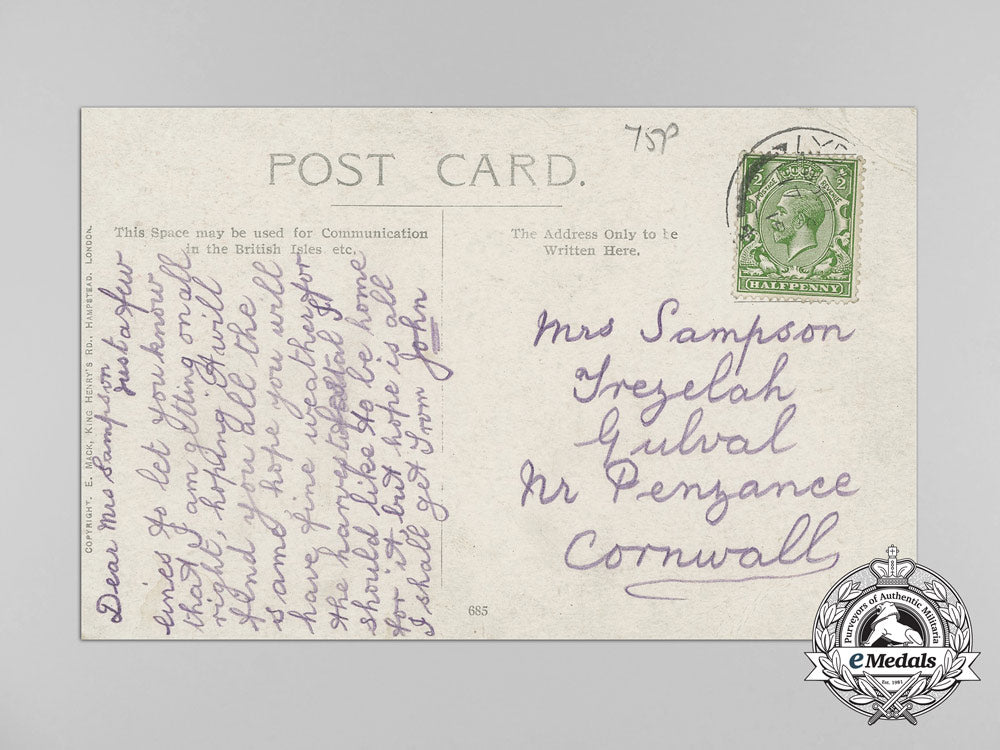 75P
POST CARD.
This Space may be used for Communication
in the British Isles etc.
The Address Only to be
Written Here.
HALFPENNY
Mrs Sampson
Trezelah
Gulval
Nr Penzance
Cornwall
Dear Mrs Sampson
Just a few
lines to let you know
that I am getting on all
right, hoping it will
find you all the
same hope you will
have fine weather for
the harvest I
should like to be home
for it but hope is all
I shall get from John
COPYRIGHT. E. MACK, KING HENRY'S RD., HAMPSTEAD, LONDON.
685
Purveyors of Authentic Militaria
eMedals
Est. 1981